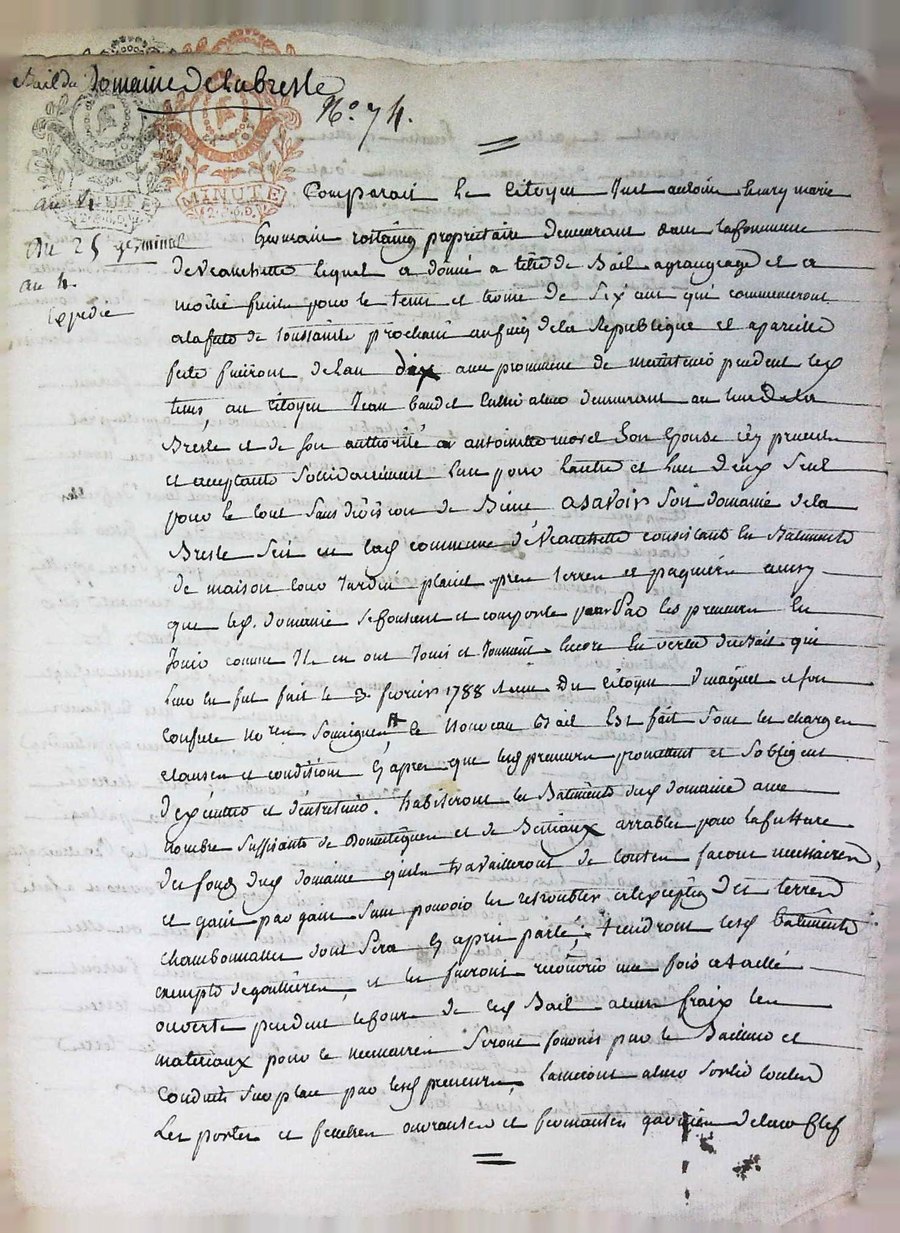 Bail du Domaine de la bresle
N.º 74.
MINUTE
MINUTE
au 4
du 25 germinal
au 4.
Expédié
Comparait le Citoyen Just antoine henry marie
Germain rostaing proprietaire demeurant dans la commune
de Veauchette lequel a donné a titre de Bail a grangeage et a
moitié fruits pour le tems et terme de Six ans qui commenceront
a la fete de toussaints prochain de la Republique et a pareille
fete finiront de l'an dix avec promesse de maintenir pendent led.
tems, au Citoyen Jean baudet Cultivateur demeurant au lieu De la
Bresle et de son authorité a antoinette morel Son Epouse icy presents
et acceptants Solidairement l'un pour l'autre et l'un d'eux Seul
pour le tout Sans division de Biens a Savoir Son domaine de la
Bresle Scis en lad. commune de Veauchette consistant En Batiments
de maison cour Jardin prés terres et paquiers ainsy
que led. domaine Se Consiste et comporte par les preneurs En
Jouir comme Ils en ont Joui et Jouissent Encore En vertu du Bail qui
leur En fut fait le 3. fevrier 1788 du Citoyen et son
confrere not.res Soussignés le Nouveau Bail Est fait Sous les charges
clauses et conditions cy apres que lesd. preneurs promettent et S'obligent
d'executer et d'entretenir. habiteront les Batiments dud. domaine avec
nombre Suffisants de Domestiques et de Bestiaux arrables pour la culture
des fonds dud. domaine qu'ils travailleront de toutes facons necessaires
et gain par gain Sans pouvoir les retroubler a l'exception des terres
chambonnalles dont Sera cy apres parlé; tiendront lesd. batiments
exempts de goutieres, et les feront recouvrir une fois a taille
ouverte pendent le cours de ced. Bail a leurs fraix les
materiaux pour ce necessaires Seront fournis par le Bailleur et
conduits Sur place par lesd. preneurs,
Les portes et fenetres ouvrantes et fermantes garnies de leur Clef